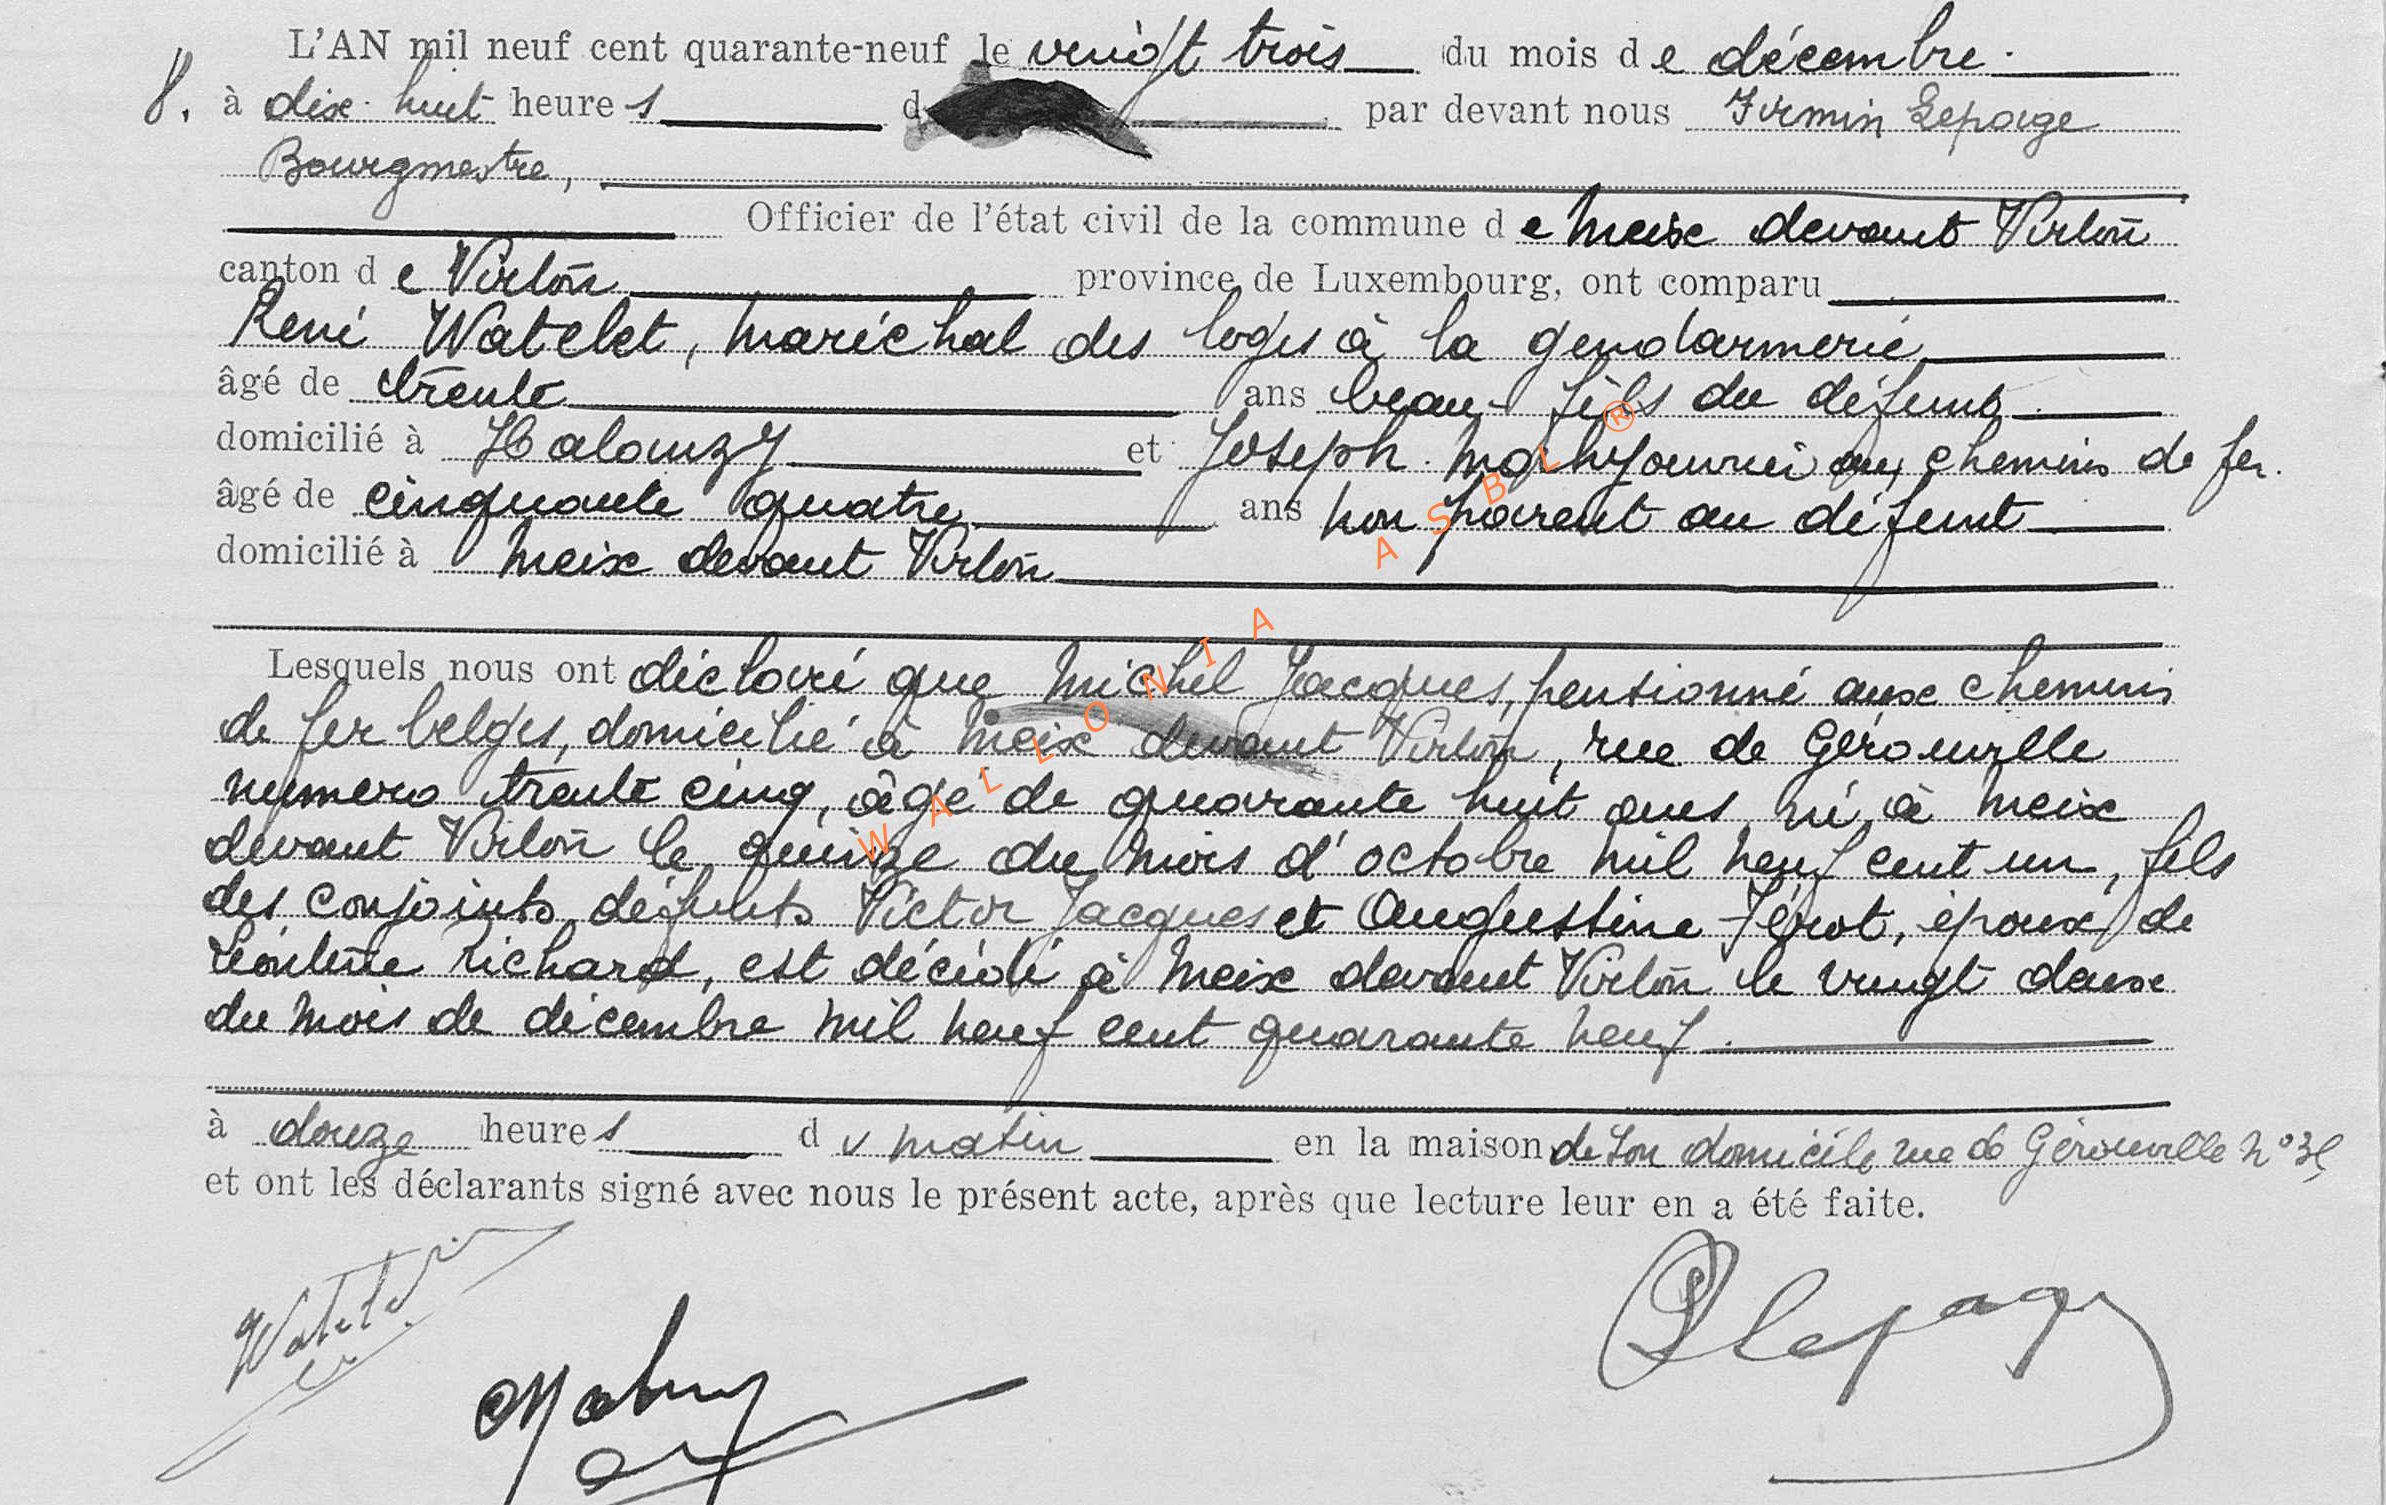 L'AN mil neuf cent quarante-neuf le vingt trois du mois de décembre.
8. à dix-huit heures d par devant nous Firmin Lepage
Bourgmestre,
Officier de l'état civil de la commune de Meix devant Virton
canton de Virton province de Luxembourg, ont comparu
René Watelet, Maréchal des logis à la gendarmerie
âgé de trente ans beau-fils du défunt
domicilié à Halanzy et Joseph Mahy ouvrier aux chemins de fer.
âgé de cinquante quatre ans non parent au défunt
domicilié à Meix devant Virton
Lesquels nous ont déclaré que Michel Jacques, pensionné aux chemins
de fer belges, domicilié à Meix devant Virton, rue de Gérouville
numero trente cinq, âgé de quarante huit ans, né à Meix
devant Virton le quinze du mois d'octobre mil neuf cent un, fils
des conjoints défunts Victor Jacques et Augustine Férot, époux de
Léontine Richard, est décédé à Meix devant Virton le vingt deux
du mois de décembre mil neuf cent quarante neuf.
à douze heures du matin en la maison de son domicile rue de Gérouville n° 35
et ont les déclarants signé avec nous le présent acte, après que lecture leur en a été faite.
Watelet
Mahy
Lepage
WALLONIA ASBL ®